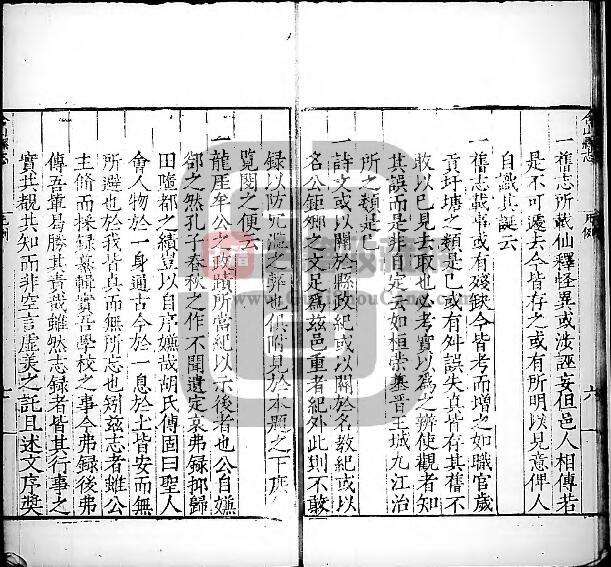 一舊志所載仙釋怪異或涉誣妄但邑人相傳若
是不可遽去今皆存之或有所明以見意俾人
自識其誕云
一舊志載事或有殘缺今皆考而增之如職官歲
貢圩塘之類是已或有舛誤失真皆存其舊不
敢以已見去取也必考實以為之辨使觀者知
其誤而是非自定云如桓榮墓晉王城九江治
所之類是巳
一詩文或以關於縣政紀或以關於名教紀或以
名公鉅卿之文足為兹邑重者紀外此則不敢
録以防冗濫之弊也俱附見於本題之下庶
覽閱之便云
一龍厓牟公之政蹟所當紀以示後者也公自嫌
郤之然孔子春秋之作不聞遺定哀弗録郈歸
田墮都之績豈以自序嫌哉胡氏傳固曰聖人
會人物於一身通古今於一息於土皆安而無
所避也於我皆真而無所忘也矧兹志者雖公
主脩而採録纂輯實吾學校之事今弗録後弗
傳吾輩曷勝其責哉雖然志録者皆其行事之
實共覩共知而非空言虛美之託且述文序奬
六
七
序例